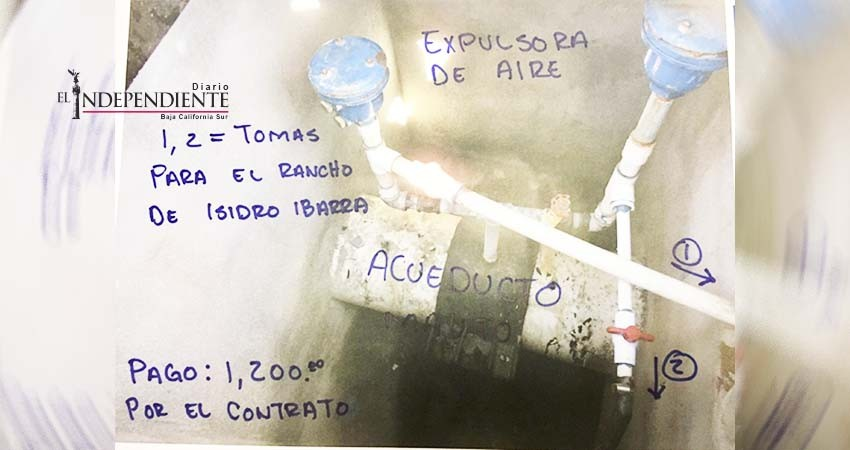 EXPULSORA
DE AIRE
Diario
EL INDEPENDIENTE
Baja California Sur
1, 2 = TOMAS
PARA EL RANCHO
DE ISIDRO IBARRA
ACUEDUCTO
1
2
PAGO: 1,200.00
POR EL CONTRATO